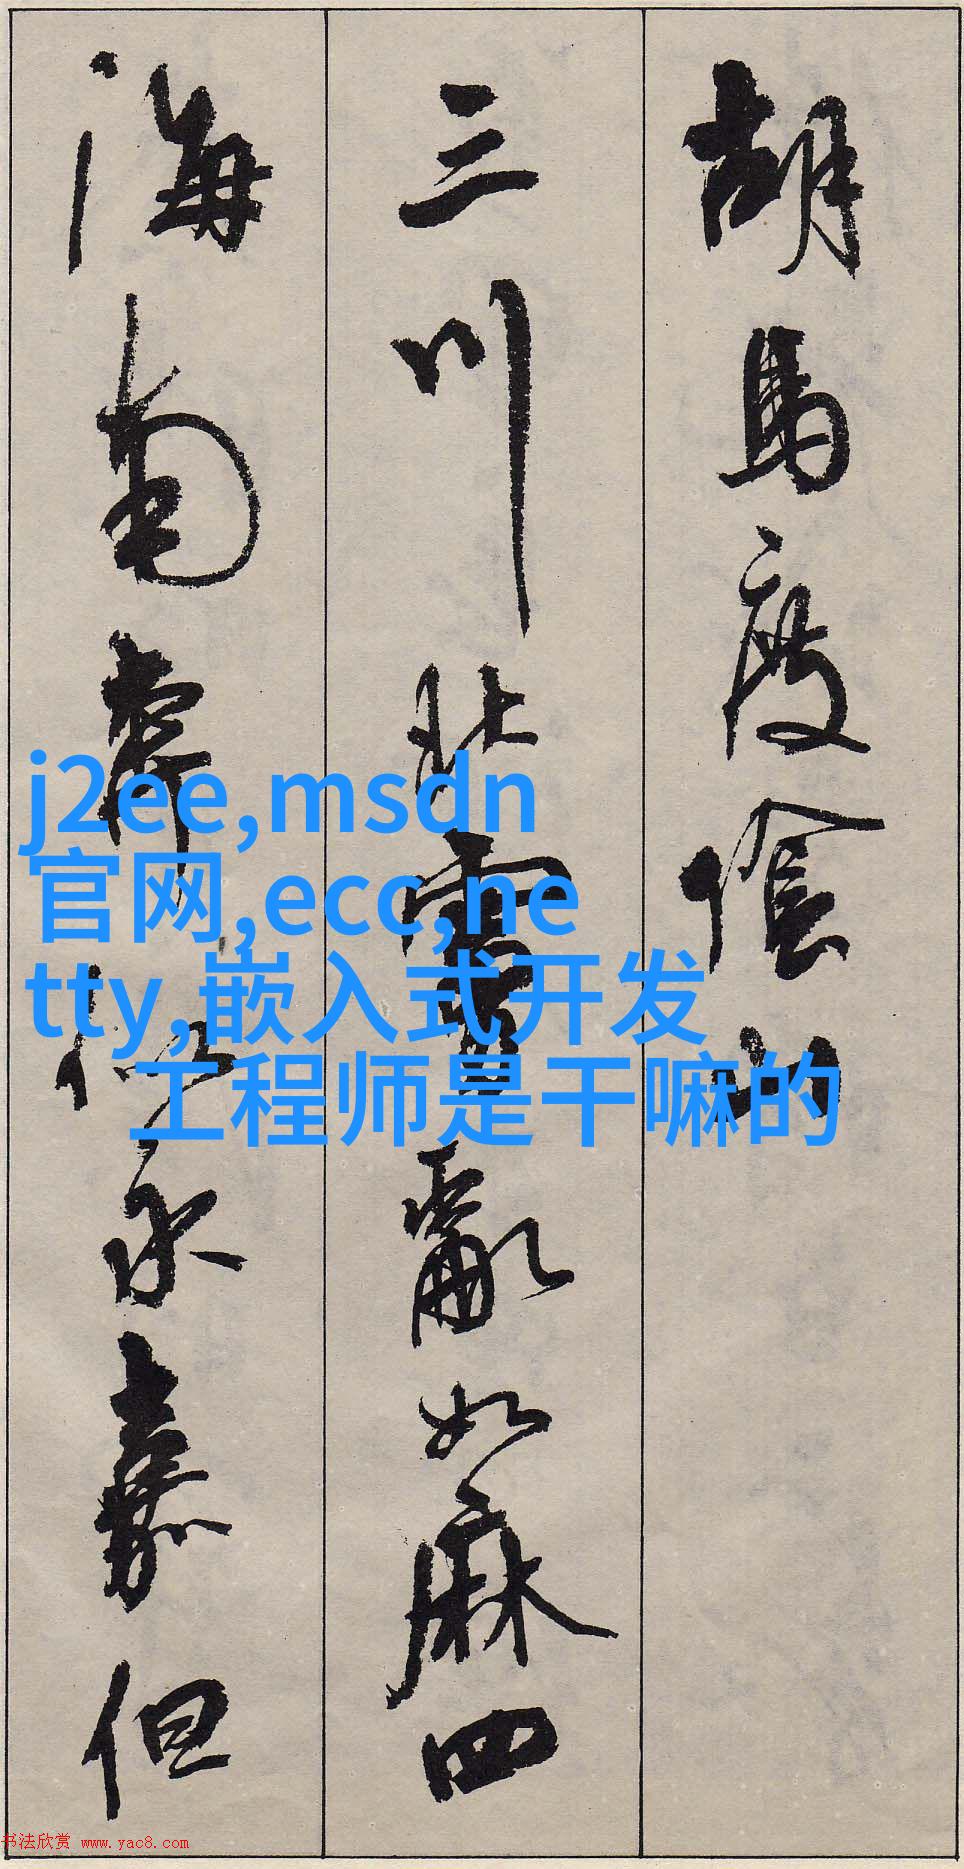 胡馬度陰山
三川北虜亂如麻四
海南奔似永嘉但
j2ee,msdn
官网,ecc,ne
tty,嵌入式开发
工程师是干嘛的
书法欣赏 www.yac8.com